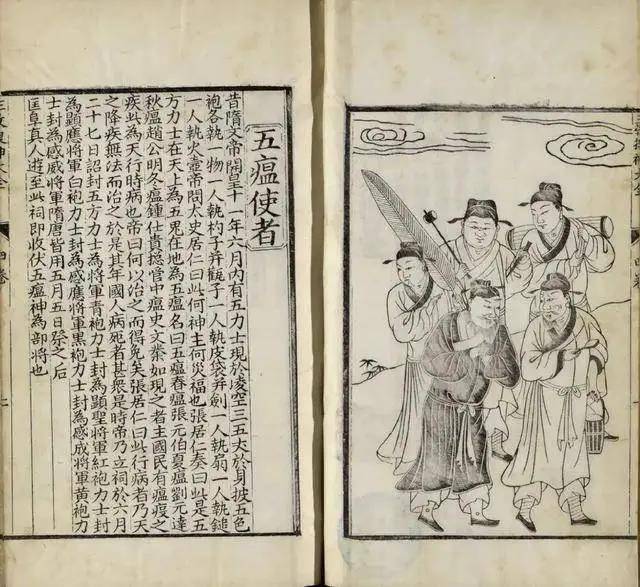 五瘟使者
昔隋文帝開皇十一年六月內有五力士現於凌空三五丈於身披五色
袍各執一物一人執杓子并罐子一人執皮袋并劍一人執扇一人執鎚
一人執火壺帝問太史居仁曰此何神主何災福也張居仁奏曰此是五
方力士在天上為五鬼在地為五瘟名曰五瘟春瘟張元伯夏瘟劉元達
秋瘟趙公明冬瘟鍾仕貴摠管中瘟史文業如現之者主國民有瘟疫之
疾此為天行時病也帝曰何以治之而得免矣張居仁曰此行病者乃天
之降疾無法而治之於是其年國人病死者甚眾是時帝乃立祠於六月
二十七日詔封五方力士為將軍青袍力士封為顯聖將軍紅袍力士封
為顯應將軍白袍力士封為感應將軍黑袍力士封為感成將軍黃袍力
士封為感威將軍隋唐皆用五月五日祭之后
匡阜真人遊至此祠即收伏五瘟神為部將也
四卷